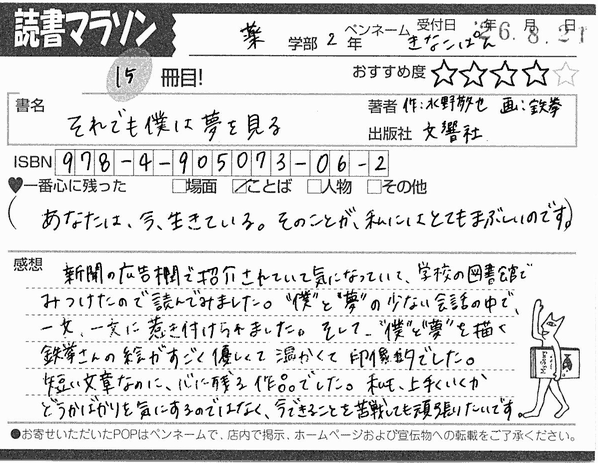 読書マラソン
薬 学部 2 年 ペンネーム きなこぱん 受付日 '26.8.21 年 月 日
15 冊目! おすすめ度 ★★★★☆
書名 それでも僕は夢を見る
著者 作:水野敬也 画:鉄拳
出版社 文響社
ISBN 978-4-905073-06-2
♥一番心に残った □場面 ☑ことば □人物 □その他
(あなたは、今、生きている。そのことが、私にはとてもまぶしいのです。)
感想
新聞の広告欄で紹介されていて気になっていて、学校の図書館で
みつけたので読んでみました。"僕"と"夢"の少ない会話の中で、
一文、一文に惹き付けられました。そして、"僕"と"夢"を描く
鉄拳さんの絵がすごく優しくて温かくて印象的でした。
短い文章なのに、心に残る作品でした。私も、上手くいくか
どうかばかりを気にするのではなく、今できることを苦戦しても頑張りたいです。
●お寄せいただいたPOPはペンネームで、店内で掲示、ホームページおよび宣伝物への転載をご了承ください。